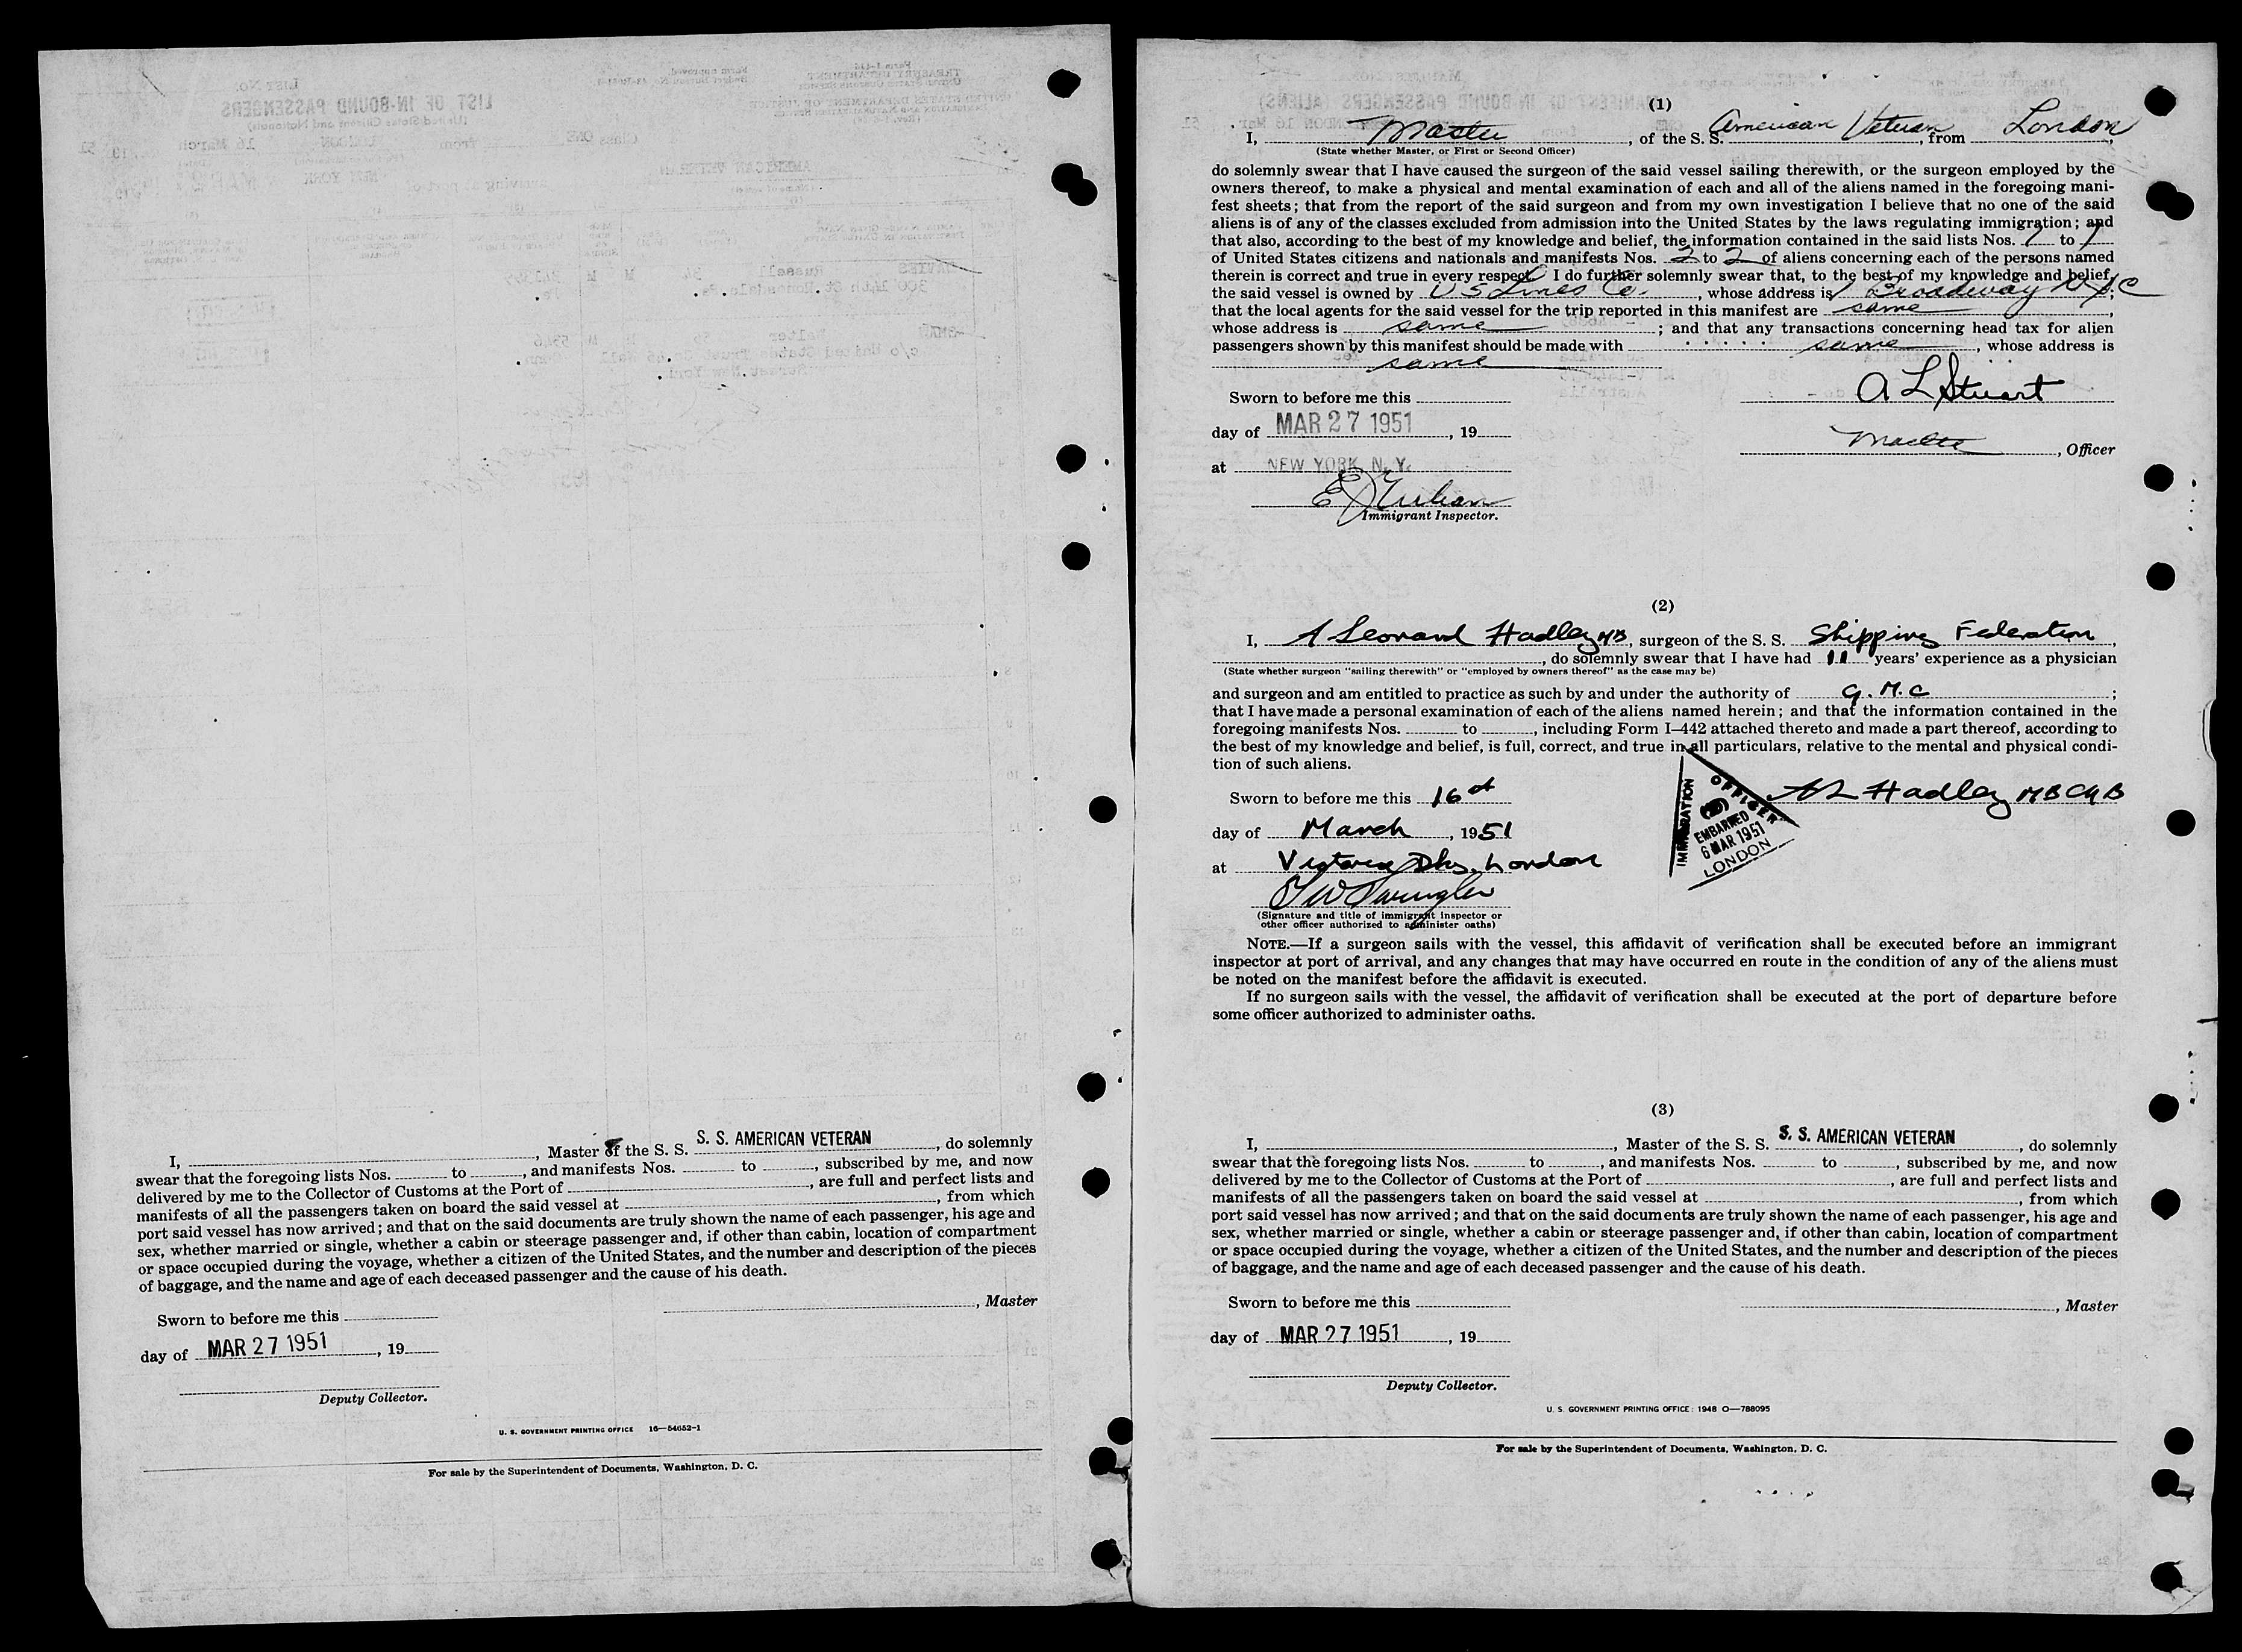 I, , Master of the S. S. S. S. AMERICAN VETERAN, do solemnly
swear that the foregoing lists Nos. to , and manifests Nos. to , subscribed by me, and now
delivered by me to the Collector of Customs at the Port of , are full and perfect lists and
manifests of all the passengers taken on board the said vessel at , from which
port said vessel has now arrived; and that on the said documents are truly shown the name of each passenger, his age and
sex, whether married or single, whether a cabin or steerage passenger and, if other than cabin, location of compartment
or space occupied during the voyage, whether a citizen of the United States, and the number and description of the pieces
of baggage, and the name and age of each deceased passenger and the cause of his death.
Sworn to before me this
, Master
day of MAR 27 1951, 19
Deputy Collector.
U. S. GOVERNMENT PRINTING OFFICE 16—54652-1
For sale by the Superintendent of Documents, Washington, D. C.
(1)
I, Master, of the S. S. American Veteran, from London,
(State whether Master, or First or Second Officer)
do solemnly swear that I have caused the surgeon of the said vessel sailing therewith, or the surgeon employed by the
owners thereof, to make a physical and mental examination of each and all of the aliens named in the foregoing mani-
fest sheets; that from the report of the said surgeon and from my own investigation I believe that no one of the said
aliens is of any of the classes excluded from admission into the United States by the laws regulating immigration; and
that also, according to the best of my knowledge and belief, the information contained in the said lists Nos. 1 to 1
of United States citizens and nationals and manifests Nos. 2 to 2 of aliens concerning each of the persons named
therein is correct and true in every respect. I do further solemnly swear that, to the best of my knowledge and belief,
the said vessel is owned by U S Lines Co., whose address is 1 Broadway N Y C;
that the local agents for the said vessel for the trip reported in this manifest are same,
whose address is same; and that any transactions concerning head tax for alien
passengers shown by this manifest should be made with same, whose address is
same
Sworn to before me this
A L Stuart
day of MAR 27 1951, 19
Master, Officer
at NEW YORK, N. Y.
Immigrant Inspector.
(2)
I, A Leonard Hadley MB, surgeon of the S. S. Shipping Federation,
, do solemnly swear that I have had 11 years' experience as a physician
(State whether surgeon "sailing therewith" or "employed by owners thereof" as the case may be)
and surgeon and am entitled to practice as such by and under the authority of G. M. C;
that I have made a personal examination of each of the aliens named herein; and that the information contained in the
foregoing manifests Nos. to , including Form I-442 attached thereto and made a part thereof, according to
the best of my knowledge and belief, is full, correct, and true in all particulars, relative to the mental and physical condi-
tion of such aliens.
IMMIGRATION OFFICER
EMBARKED
6 MAR 1951
LONDON
A L Hadley MB CH B
Sworn to before me this 16th
day of March, 1951
at Victoria Dks, London
(Signature and title of immigrant inspector or
other officer authorized to administer oaths)
NOTE.—If a surgeon sails with the vessel, this affidavit of verification shall be executed before an immigrant
inspector at port of arrival, and any changes that may have occurred en route in the condition of any of the aliens must
be noted on the manifest before the affidavit is executed.
If no surgeon sails with the vessel, the affidavit of verification shall be executed at the port of departure before
some officer authorized to administer oaths.
(3)
I, , Master of the S. S. S. S. AMERICAN VETERAN, do solemnly
swear that the foregoing lists Nos. to , and manifests Nos. to , subscribed by me, and now
delivered by me to the Collector of Customs at the Port of , are full and perfect lists and
manifests of all the passengers taken on board the said vessel at , from which
port said vessel has now arrived; and that on the said documents are truly shown the name of each passenger, his age and
sex, whether married or single, whether a cabin or steerage passenger and, if other than cabin, location of compartment
or space occupied during the voyage, whether a citizen of the United States, and the number and description of the pieces
of baggage, and the name and age of each deceased passenger and the cause of his death.
Sworn to before me this
, Master
day of MAR 27 1951, 19
Deputy Collector.
U. S. GOVERNMENT PRINTING OFFICE: 1948 O—788095
For sale by the Superintendent of Documents, Washington, D. C.